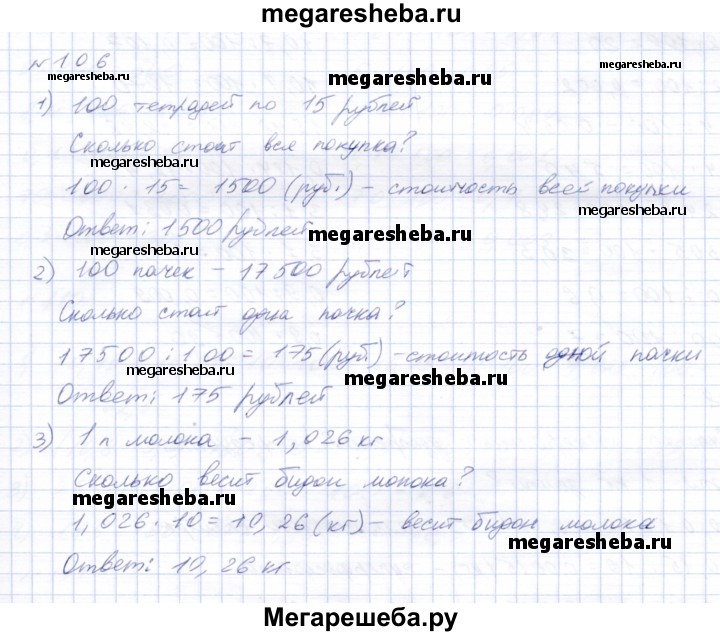 megaresheba.ru
№106
megaresheba.ru
megaresheba.ru
1) 100 тетрадей по 15 рублей
Сколько стоит вся покупка?
megaresheba.ru
100 · 15 = 1500 (руб.) – стоимость всей покупки
megaresheba.ru
Ответ: 1500 рублей
megaresheba.ru
megaresheba.ru
2) 100 пачек – 17500 рублей
Сколько стоит одна пачка?
17500 : 100 = 175 (руб) – стоимость одной пачки
megaresheba.ru
megaresheba.ru
Ответ: 175 рублей
3) 1 л молока – 1,026 кг
Сколько весит бидон молока?
megaresheba.ru
1,026 · 10 = 10,26 (кг) – весит бидон молока
megaresheba.ru
Ответ: 10,26 кг
Мегарешеба.ру